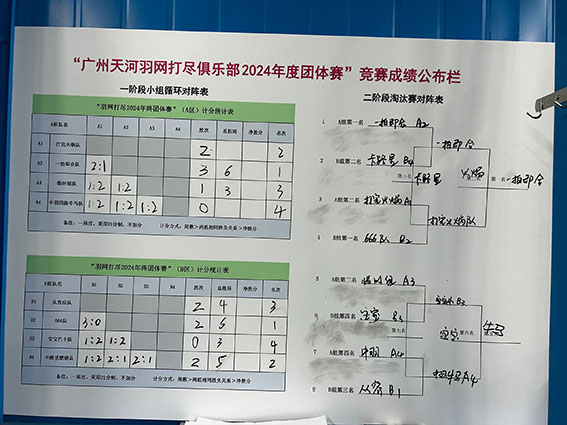 “广州天河羽网打尽俱乐部2024年度团体赛”竞赛成绩公布栏
一阶段小组循环对阵表
“羽网打尽2024年终团体赛”（A区）计分统计表
A组队名 A1 A2 A3 A4 胜次 总胜局 净胜分 名次
A1 打完火锅队 2 2
A2 一拍即合队 2:1 3 6 1
A3 临时组队 1:2 1:2 1 3 3
A4 中羽四级牛马队 1:2 1:2 1:2 0 4
备注：一局过，采用31分制，不加分 计分方式：局数>两组相同胜负关系>净胜分
“羽网打尽2024年终团体赛”（B区）计分统计表
B组队名 B1 B2 B3 B4 胜次 总胜局 净胜分 名次
B1 从容应队 2 4 3
B2 666队 3:0 2 1
B3 宝宝巴士队 1:2 1:2 0 3 4
B4 卡路里燃烧队 1:2 2:1 2:1 2 5 2
二阶段淘汰赛对阵表
1 A组第一名 一拍即合 A2
一拍即合
2 B组第二名 卡路里 B4
第三名 卡路里
火锅
第一名 一拍即合
3 A组第二名 打完火锅 A1
打完火锅队
4 B组第一名 666队 B2
5 A组第三名 临时组 A3
6 B组第四名 宝宝 B3
第七名
第六名
7 A组第四名 中羽 A4
牛马 A4
牛马
8 B组第三名 从容 B1